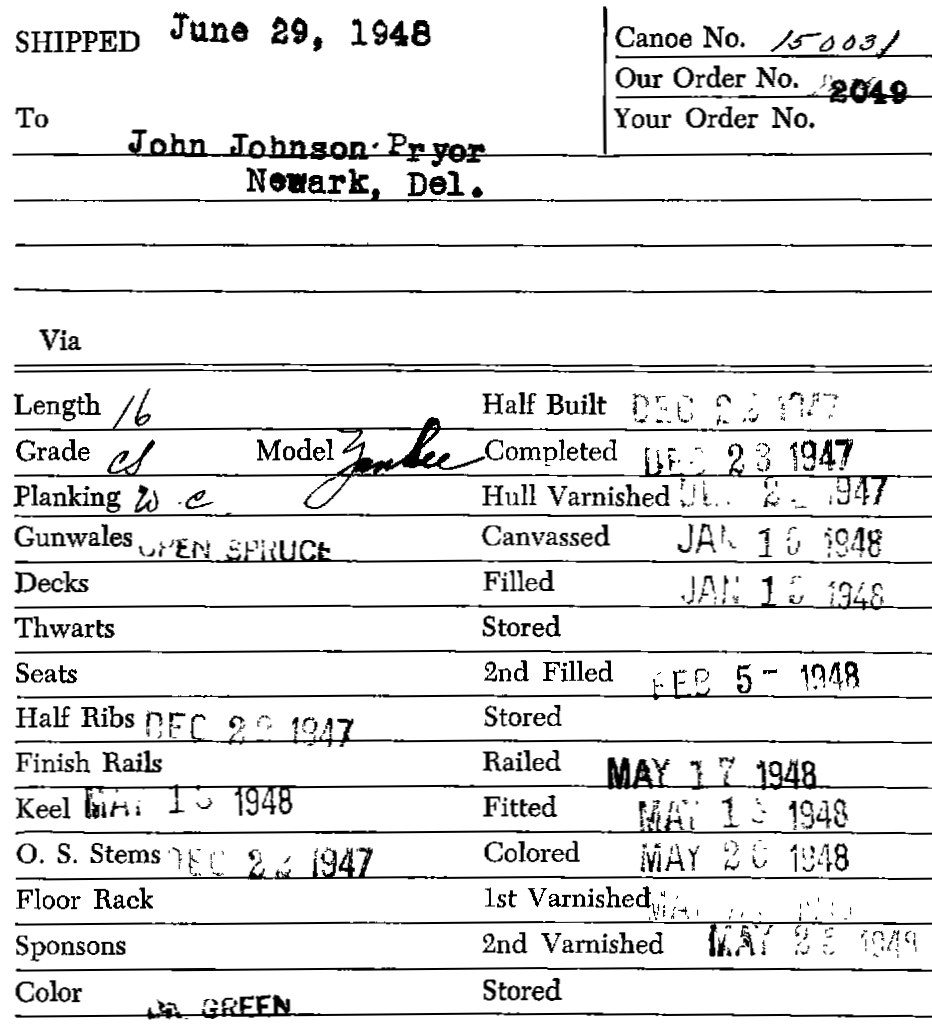 SHIPPED June 29, 1948
Canoe No. 150031
Our Order No. 2049
Your Order No.
To
John Johnson Pryor
Newark, Del.
Via
Length 16 Half Built DEC 1947
Grade CS Model Yankee Completed DEC 23 1947
Planking W C Hull Varnished 1947
Gunwales OPEN SPRUCE Canvassed JAN 1948
Decks Filled JAN 1948
Thwarts Stored
Seats 2nd Filled FEB 5 - 1948
Half Ribs DEC 1947 Stored
Finish Rails Railed MAY 17 1948
Keel MAY 1948 Fitted MAY 1948
O. S. Stems DEC 1947 Colored MAY 20 1948
Floor Rack 1st Varnished
Sponsons 2nd Varnished MAY 1948
Color DK. GREEN Stored